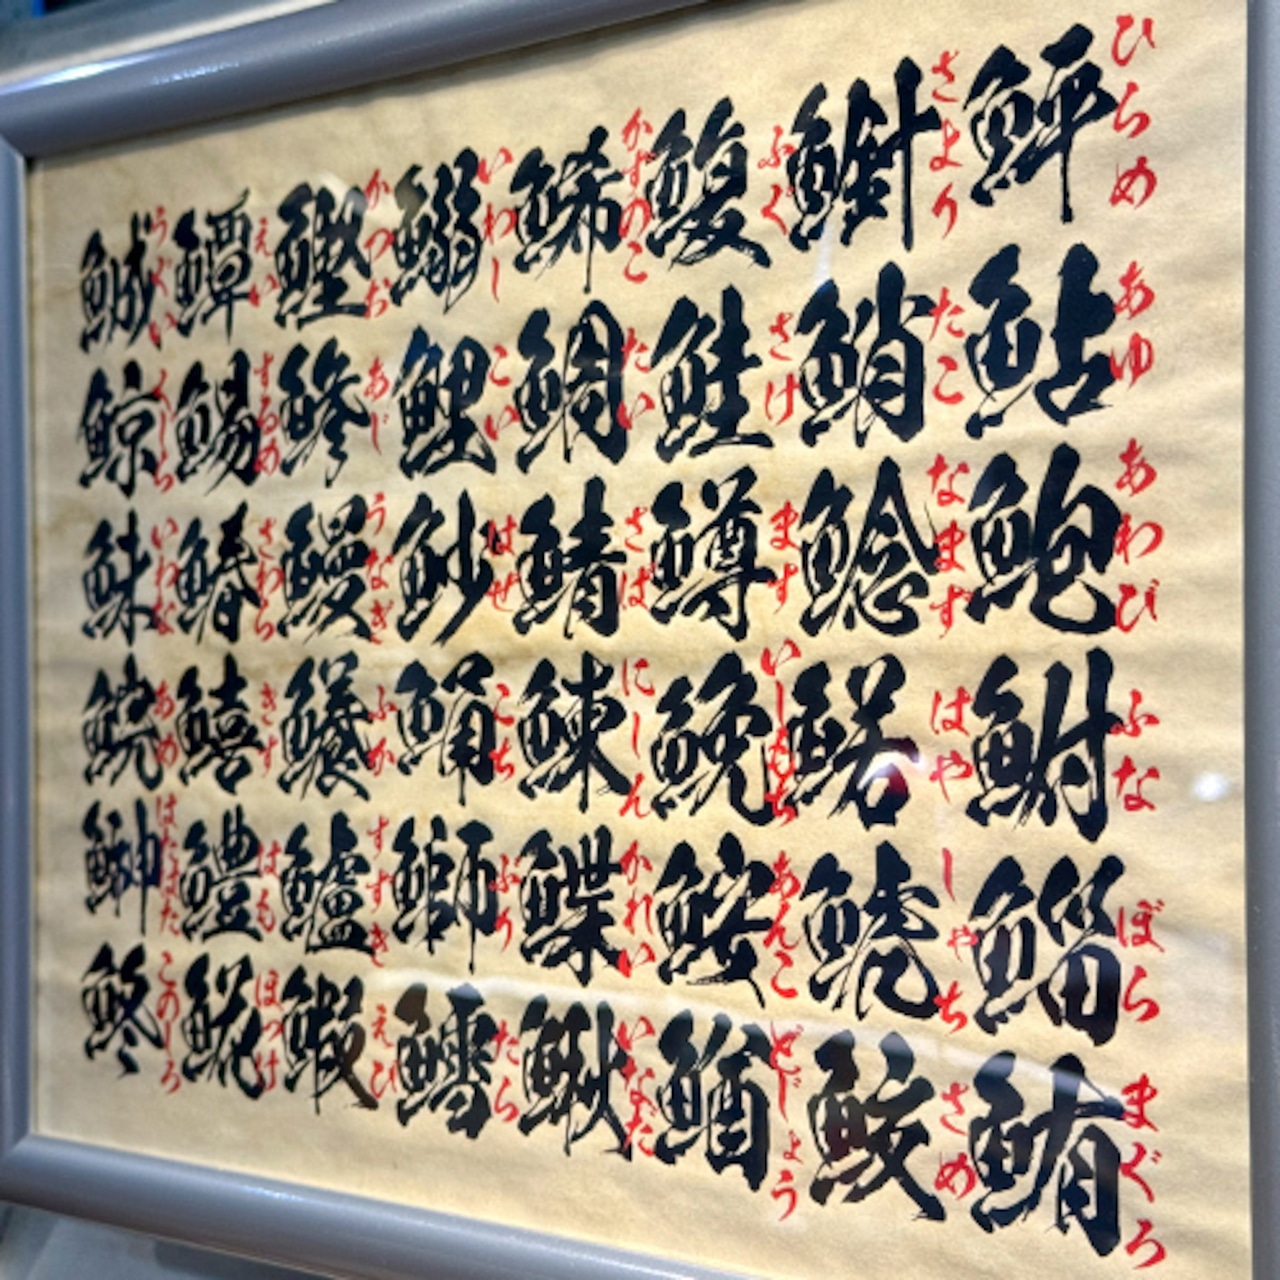 鮃 ひらめ 鮎 あゆ 鮑 あわび 鮒 ふな 鯔 ぼら 鮪 まぐろ
さより 鮹 たこ 鯰 なまず 鰙 はや 鯱 しゃち 鮫 さめ
鰒 ふぐ 鮭 さけ 鱒 ます 鮸 いしもち 鮟 あんこ 鰌 どじょう
鯑 かずのこ 鯛 たい 鯖 さば 鰊 にしん 鰈 かれい 鰍 いなだ
鰯 いわし 鯉 こい 魦 はぜ 鯒 こち 鰤 ぶり 鱈 たら
鰹 かつお 鯵 あじ 鰻 うなぎ 鱶 ふか 鱸 すずき 鰕 えび
鱏 えい 鯣 するめ 鰆 さわら 鱚 きす 鱧 はも 𩸽 ほっけ
鯎 うぐい 鯨 くじら 鮇 いわな 鯇 あめ 鰰 はたはた 鮗 このしろ